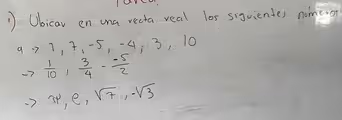 Tarea
1) Ubicar en una recta real los siguientes números
a → 1, 7, -5, -4, 3, 10
→ 1/10, 3/4 - -5/2
→ π, e, √7, -√3